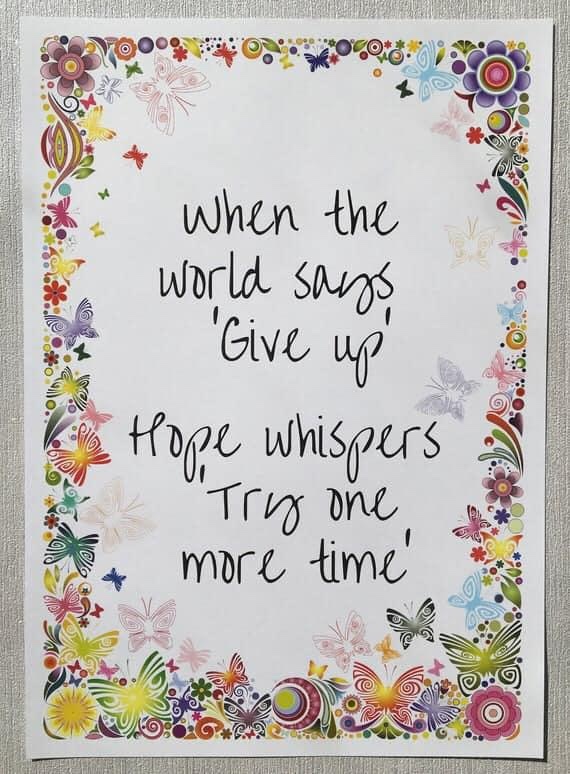 When the
world says
'Give up'
Hope whispers
'Try one
more time'